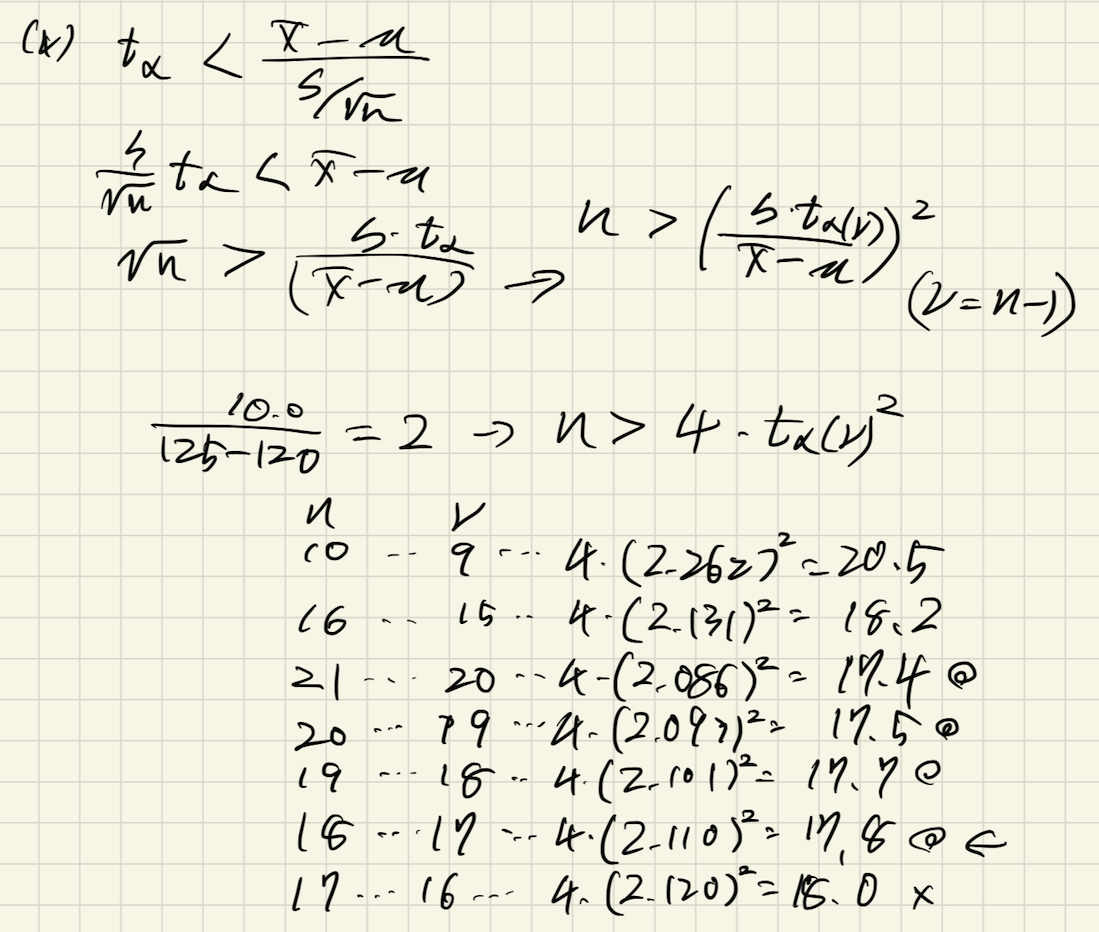 (*) tα < (x̄ - u) / (s/√n)
s/√n tα < x̄ - u
√n > s·tα / (x̄ - u) → n > (s·tα(ν) / (x̄ - u))² (ν = n-1)
10.0 / (125-120) = 2 → n > 4·tα(ν)²
n ν
10 ... 9 ... 4·(2.262)² = 20.5
16 ... 15 ... 4·(2.131)² = 18.2
21 ... 20 ... 4·(2.086)² = 17.4 ◎
20 ... 19 ... 4·(2.093)² = 17.5 ◎
19 ... 18 ... 4·(2.101)² = 17.7 ◎
18 ... 17 ... 4·(2.110)² = 17.8 ◎ ←
17 ... 16 ... 4·(2.120)² = 18.0 ×